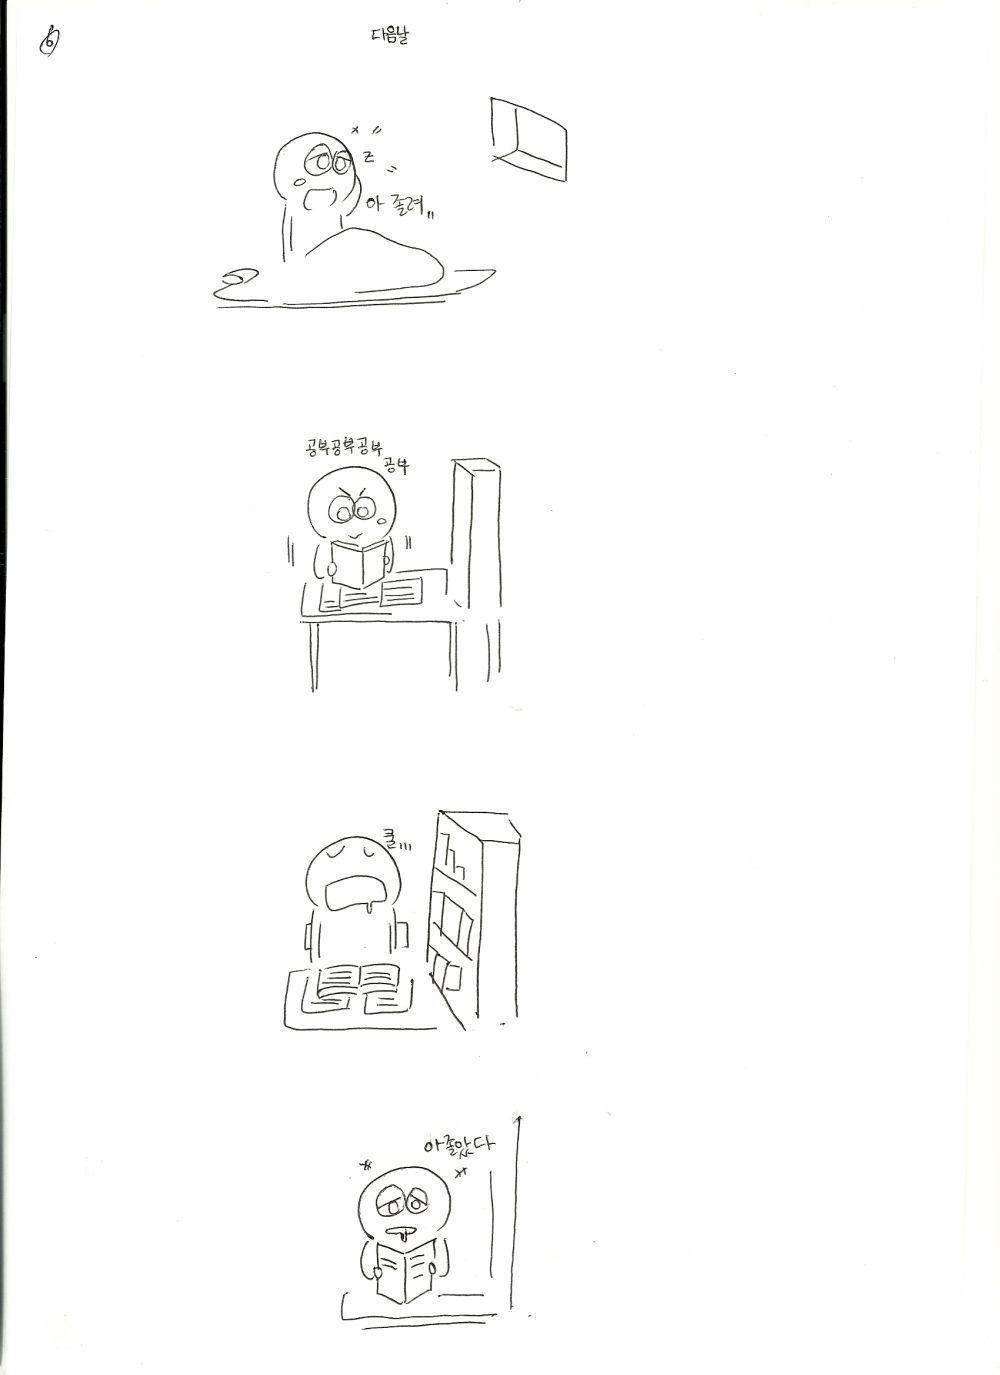 6
다음날
z
아 졸려
공부공부공부
공부
쿨...
아 졸았다